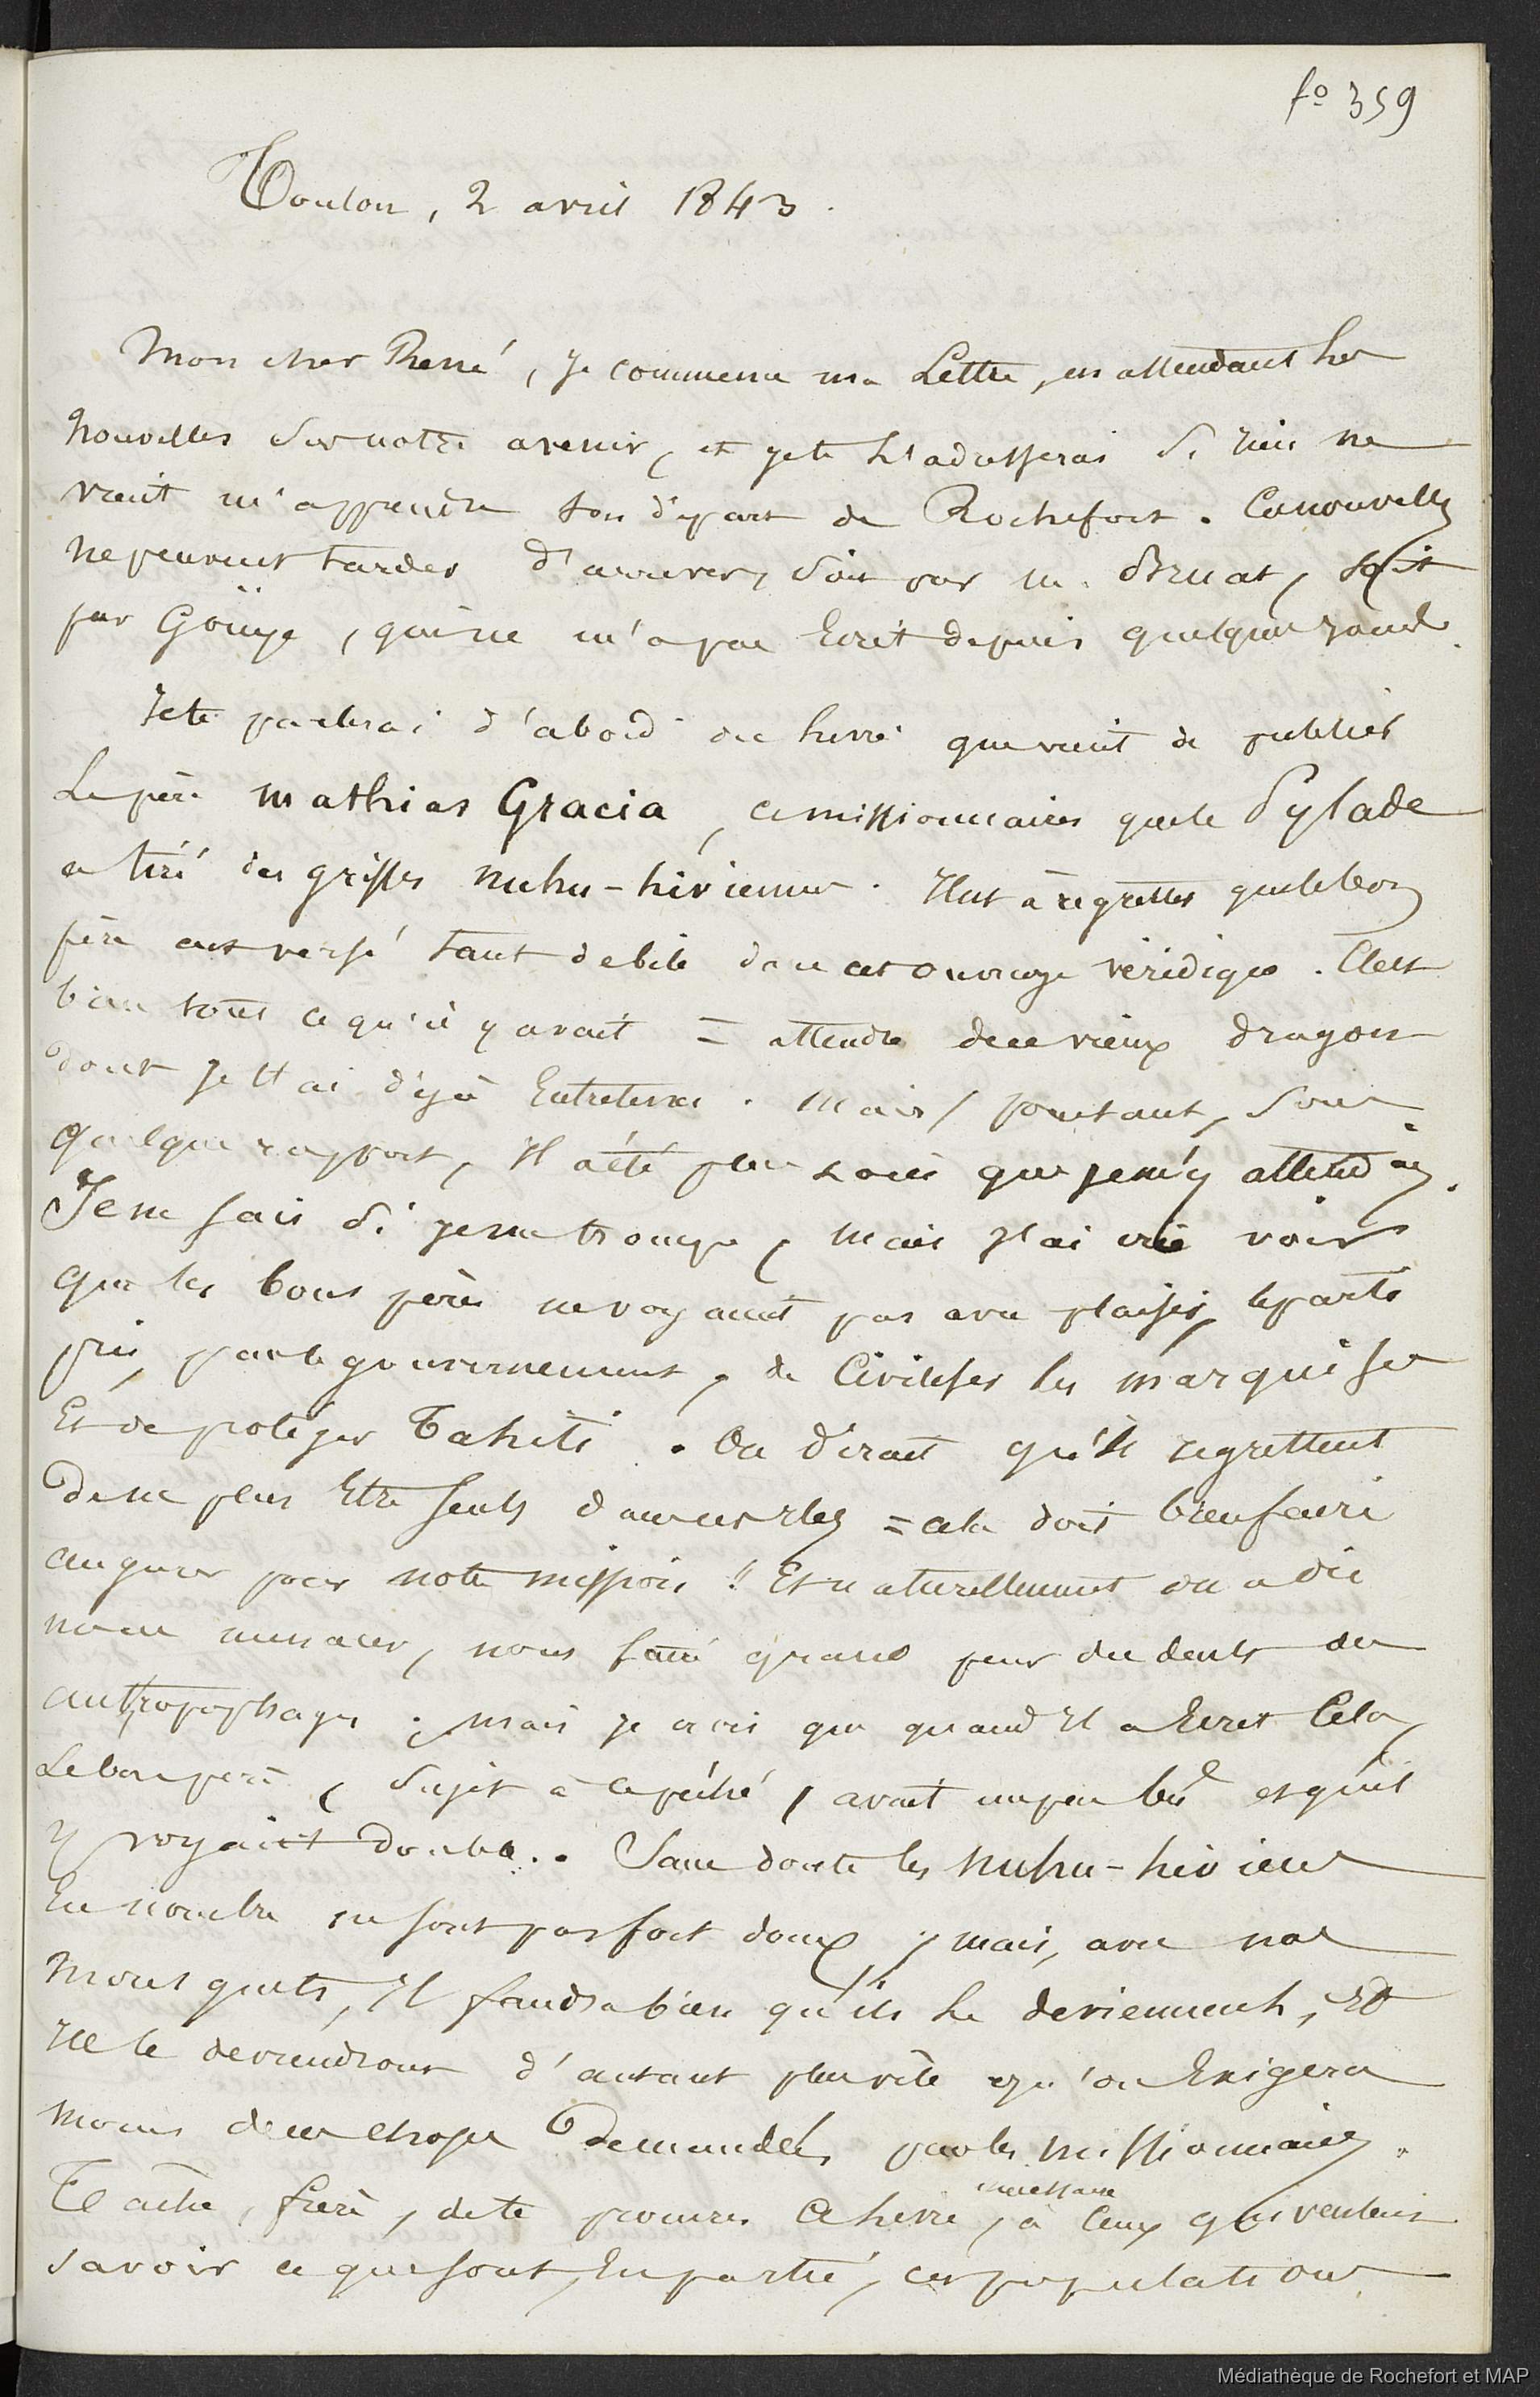 fo 359
Toulon, 2 avril 1843.
Mon cher René, je commence ma lettre, en attendant les
nouvelles sur notre avenir, et je te l'adresserai si rien ne
vient m'apprendre ton départ de Rochefort. Ces nouvelles
ne peuvent tarder d'arriver, soit par M. Bruat, soit
par Goüye, qui ne m'a pas écrit depuis quelques jours.
Je te parlerai d'abord du livre que vient de publier
Le père Mathias Gracia, ce missionnaire que le Pylade
a tiré des griffes nuhu-hiviennes. Il est à regretter que le bon
père ait versé tant de bile dans cet ouvrage véridique. C'est
bien tout ce qu'il y avait = attendre de ce vieux dragon
dont je t'ai déjà entretenu. Mais, pourtant, sous
quelque rapport, il a été plus que je m'y attendais.
Je ne sais si je me trompe, mais j'ai cru voir
que les bons pères ne voyaient pas avec plaisir, le parti
pris, par le gouvernement, de civiliser les Marquises
Et de protéger Tahiti. On dirait qu'ils regrettent
de ne plus être seuls dans ces îles = cela doit bien faire
augurer pour notre mission !! Et naturellement on a dû
nous menacer, nous faire grand peur des dents des
antropophages ; mais je crois que quand il a écrit cela,
Le bon père, sujet à ce péché, avait un peu bu et qu'il
y voyait double.. Sans doute les nuhu-hiviens
en nombre ne sont pas fort doux ; mais, avec nos
mousquets, il faudra bien qu'ils le deviennent, et
ils le deviendront d'autant plus vite qu'on exigera
moins de ces choses demandées par les missionnaires.
Tâche, frère, de te procurer ce livre, nécessaire à ceux qui veulent
savoir ce que sont, en partie, ces populations
Médiathèque de Rochefort et MAP